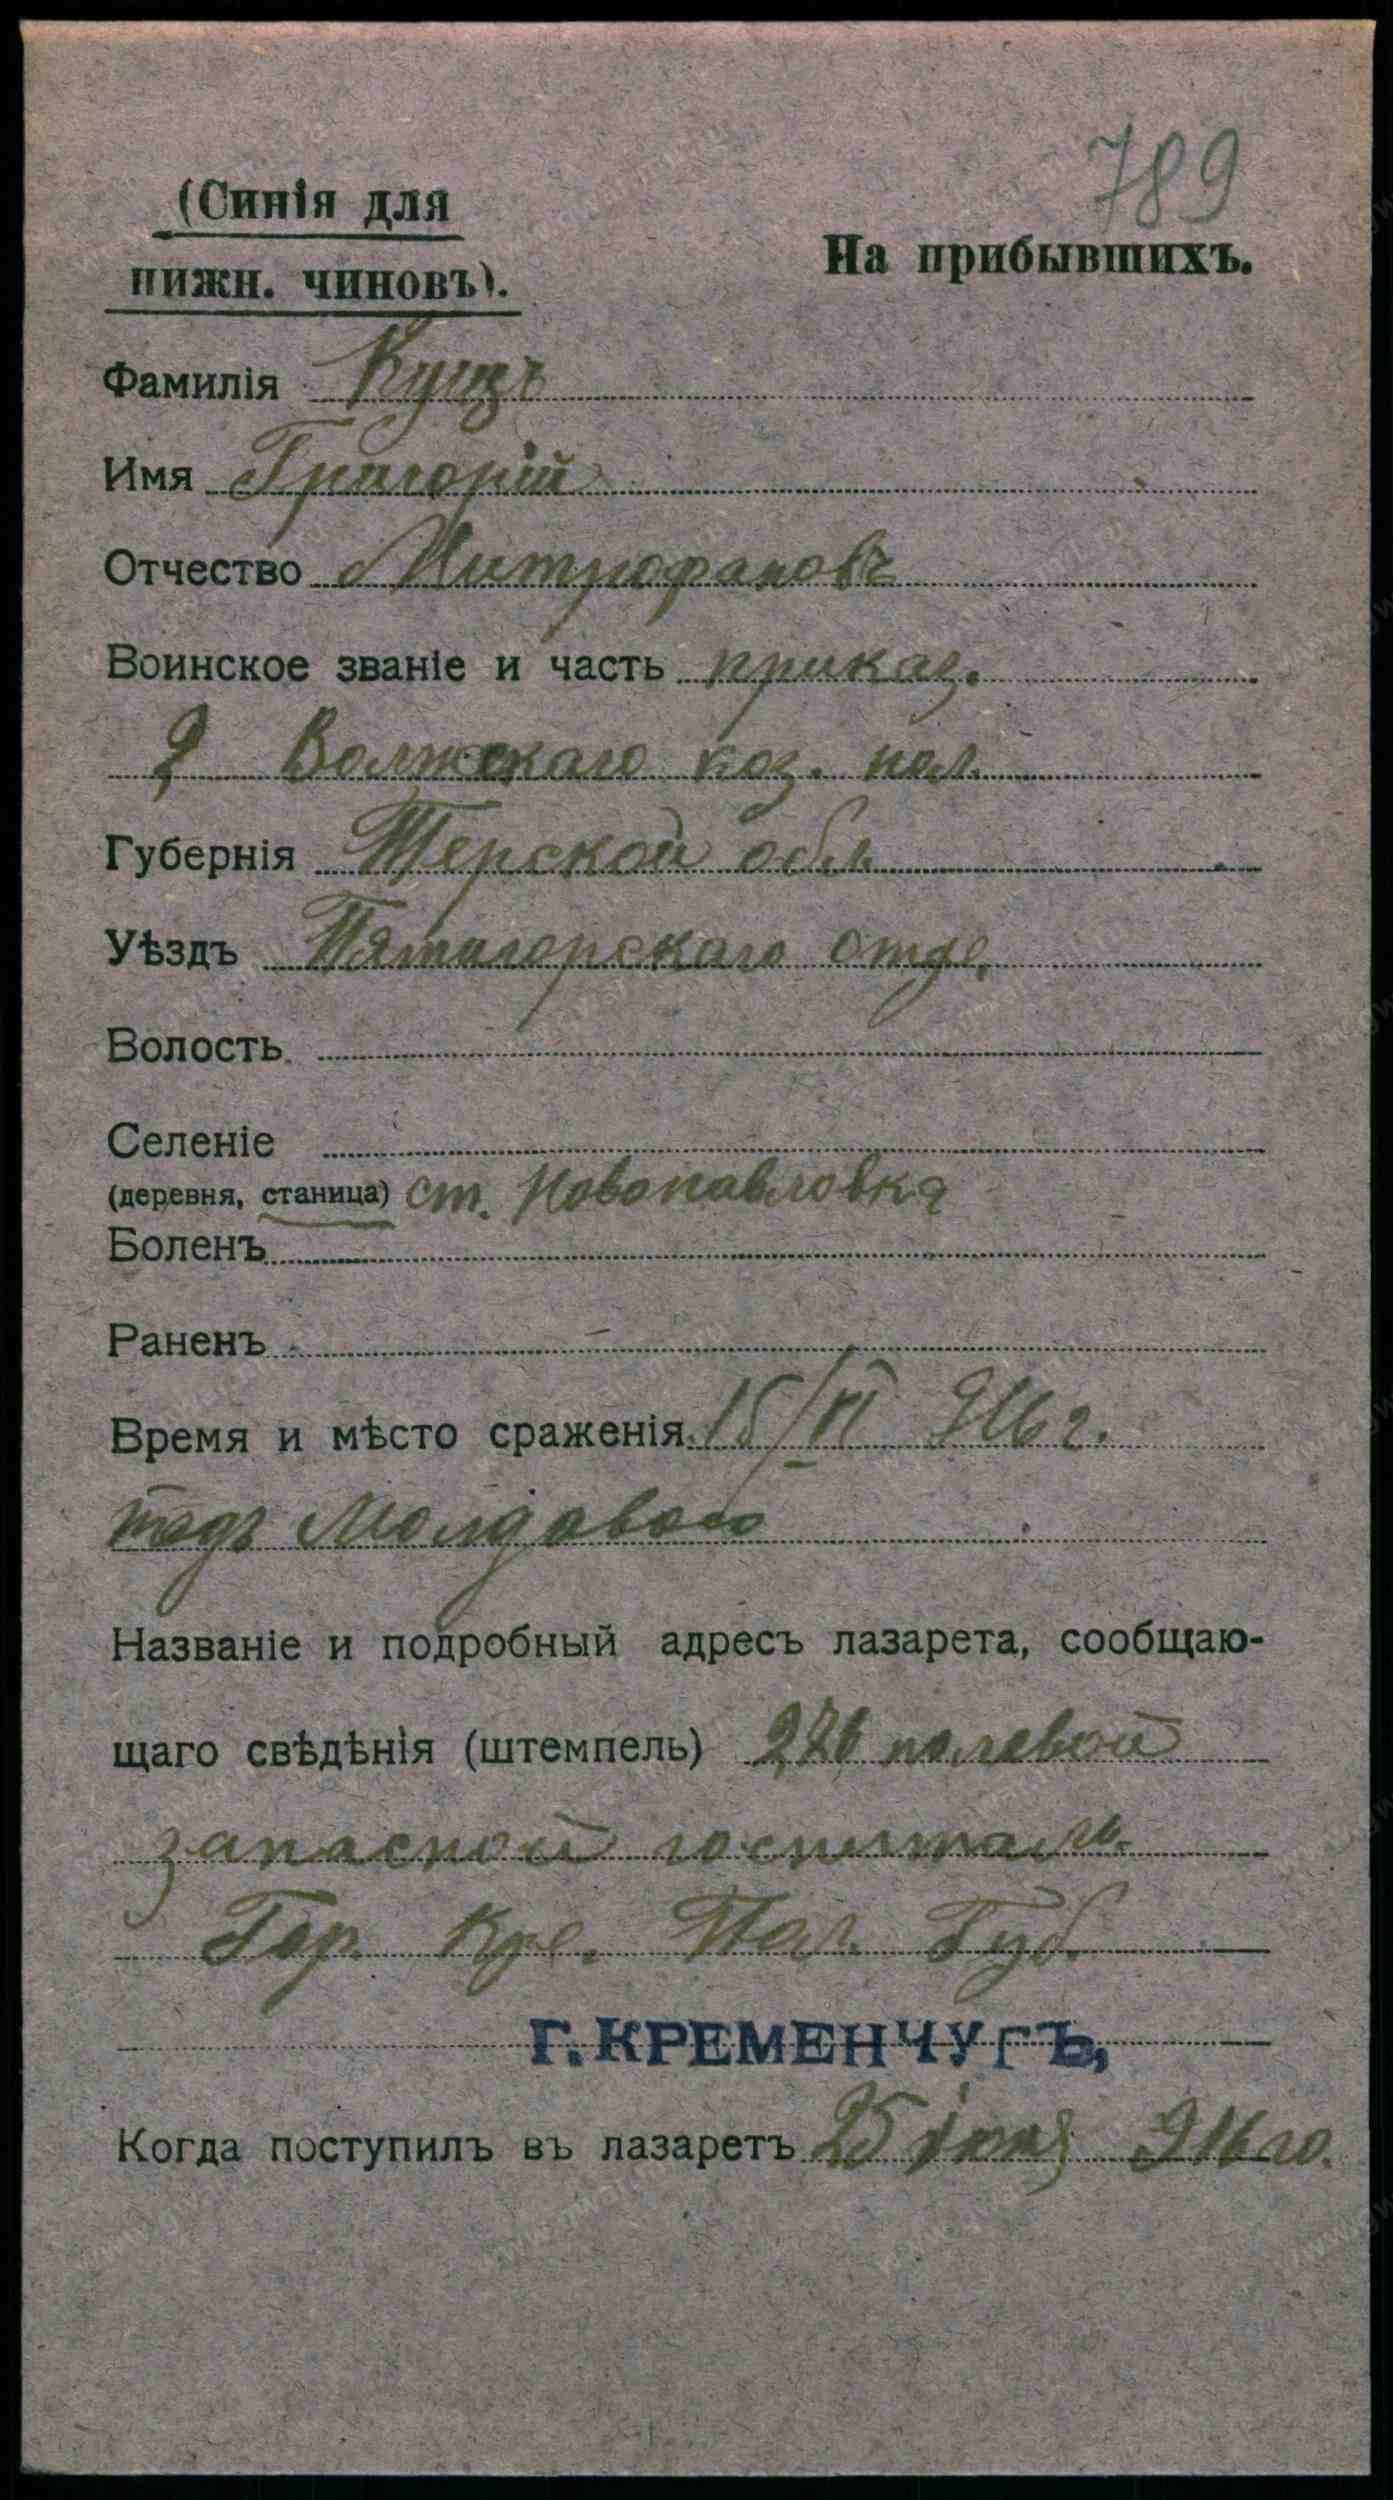 789
(Синія для
нижн. чиновъ).
На прибывшихъ.
Фамилія Кущъ
Имя Григорій
Отчество Митрофановъ
Воинское званіе и часть приказ.
2 Волжскаго каз. пол.
Губернія Терской обл.
Уѣздъ Пятигорскаго отде.
Волость
Селеніе
(деревня, станица) ст. Новопавловка
Боленъ
Раненъ
Время и мѣсто сраженія 15/VI 916 г.
подъ Молдаваго
Названіе и подробный адресъ лазарета, сообщаю-
щаго свѣдѣнія (штемпель) 276 полевой
запасной госпиталь.
Гор. Кре. Пол. Губ.
Г. КРЕМЕНЧУГЪ,
Когда поступилъ въ лазаретъ 25 916 го.